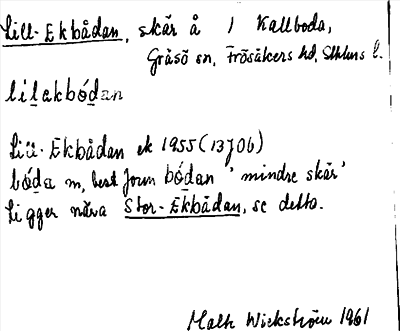 Lill-Ekbådan, skär å 1 Kallboda,
Gräsö sn, Frösåkers hd, Sthlms l.
lilekbódan
Lill-Ekbådan ek 1955 (13J0b)
båda m, best form bódan 'mindre skär'
Ligger nära Stor-Ekbådan, se detta.
Malk Wickström 1961